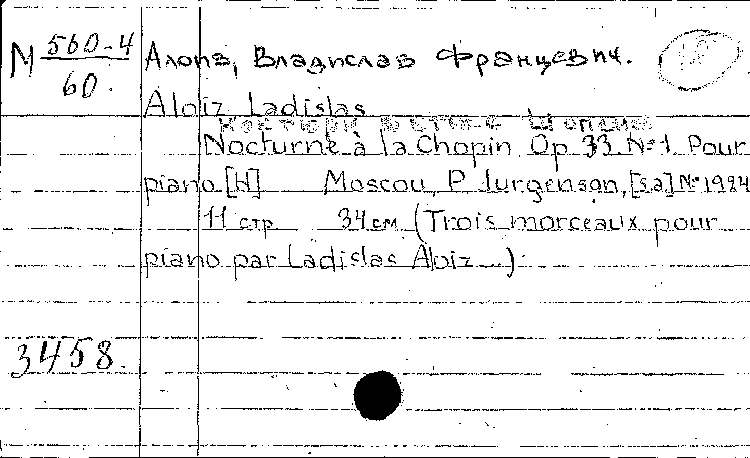 М 560-4
60.
Алоиз, Владислав Францевич.
Aloiz Ladislas
Ноктюрн в стиле Шопена
Nocturne à la Chopin Op 33 № 1 Pour
piano [Н] Moscou, P Jurgenson, [s.a] № 1984
11 стр 34 см (Trois morceaux pour
piano par Ladislas Aloiz...)
3458.